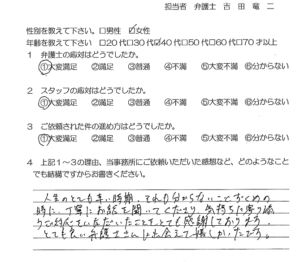 担当者 弁護士 吉田 竜二
性別を教えて下さい。□男性 ☑女性
年齢を教えて下さい □20代□30代☑40代□50代□60代□70才以上
1 弁護士の応対はどうでしたか。
①大変満足 ②満足 ③普通 ④不満 ⑤大変不満 ⑥分からない
2 スタッフの応対はどうでしたか。
①大変満足 ②満足 ③普通 ④不満 ⑤大変不満 ⑥分からない
3 ご依頼された件の進め方はどうでしたか。
①大変満足 ②満足 ③普通 ④不満 ⑤大変不満 ⑥分からない
4 上記1～3の理由、当事務所にご依頼いただいた感想など、どのようなこと
でも結構ですからお書きください。
人生のとても辛い時期、それも分からないことだらけの
時に、丁寧にお話を聞いてくださり、気持ちに寄り添
う対応をしていただいたこと、とても感謝しております。
とても良い弁護士さんにお会えて嬉しかったです。